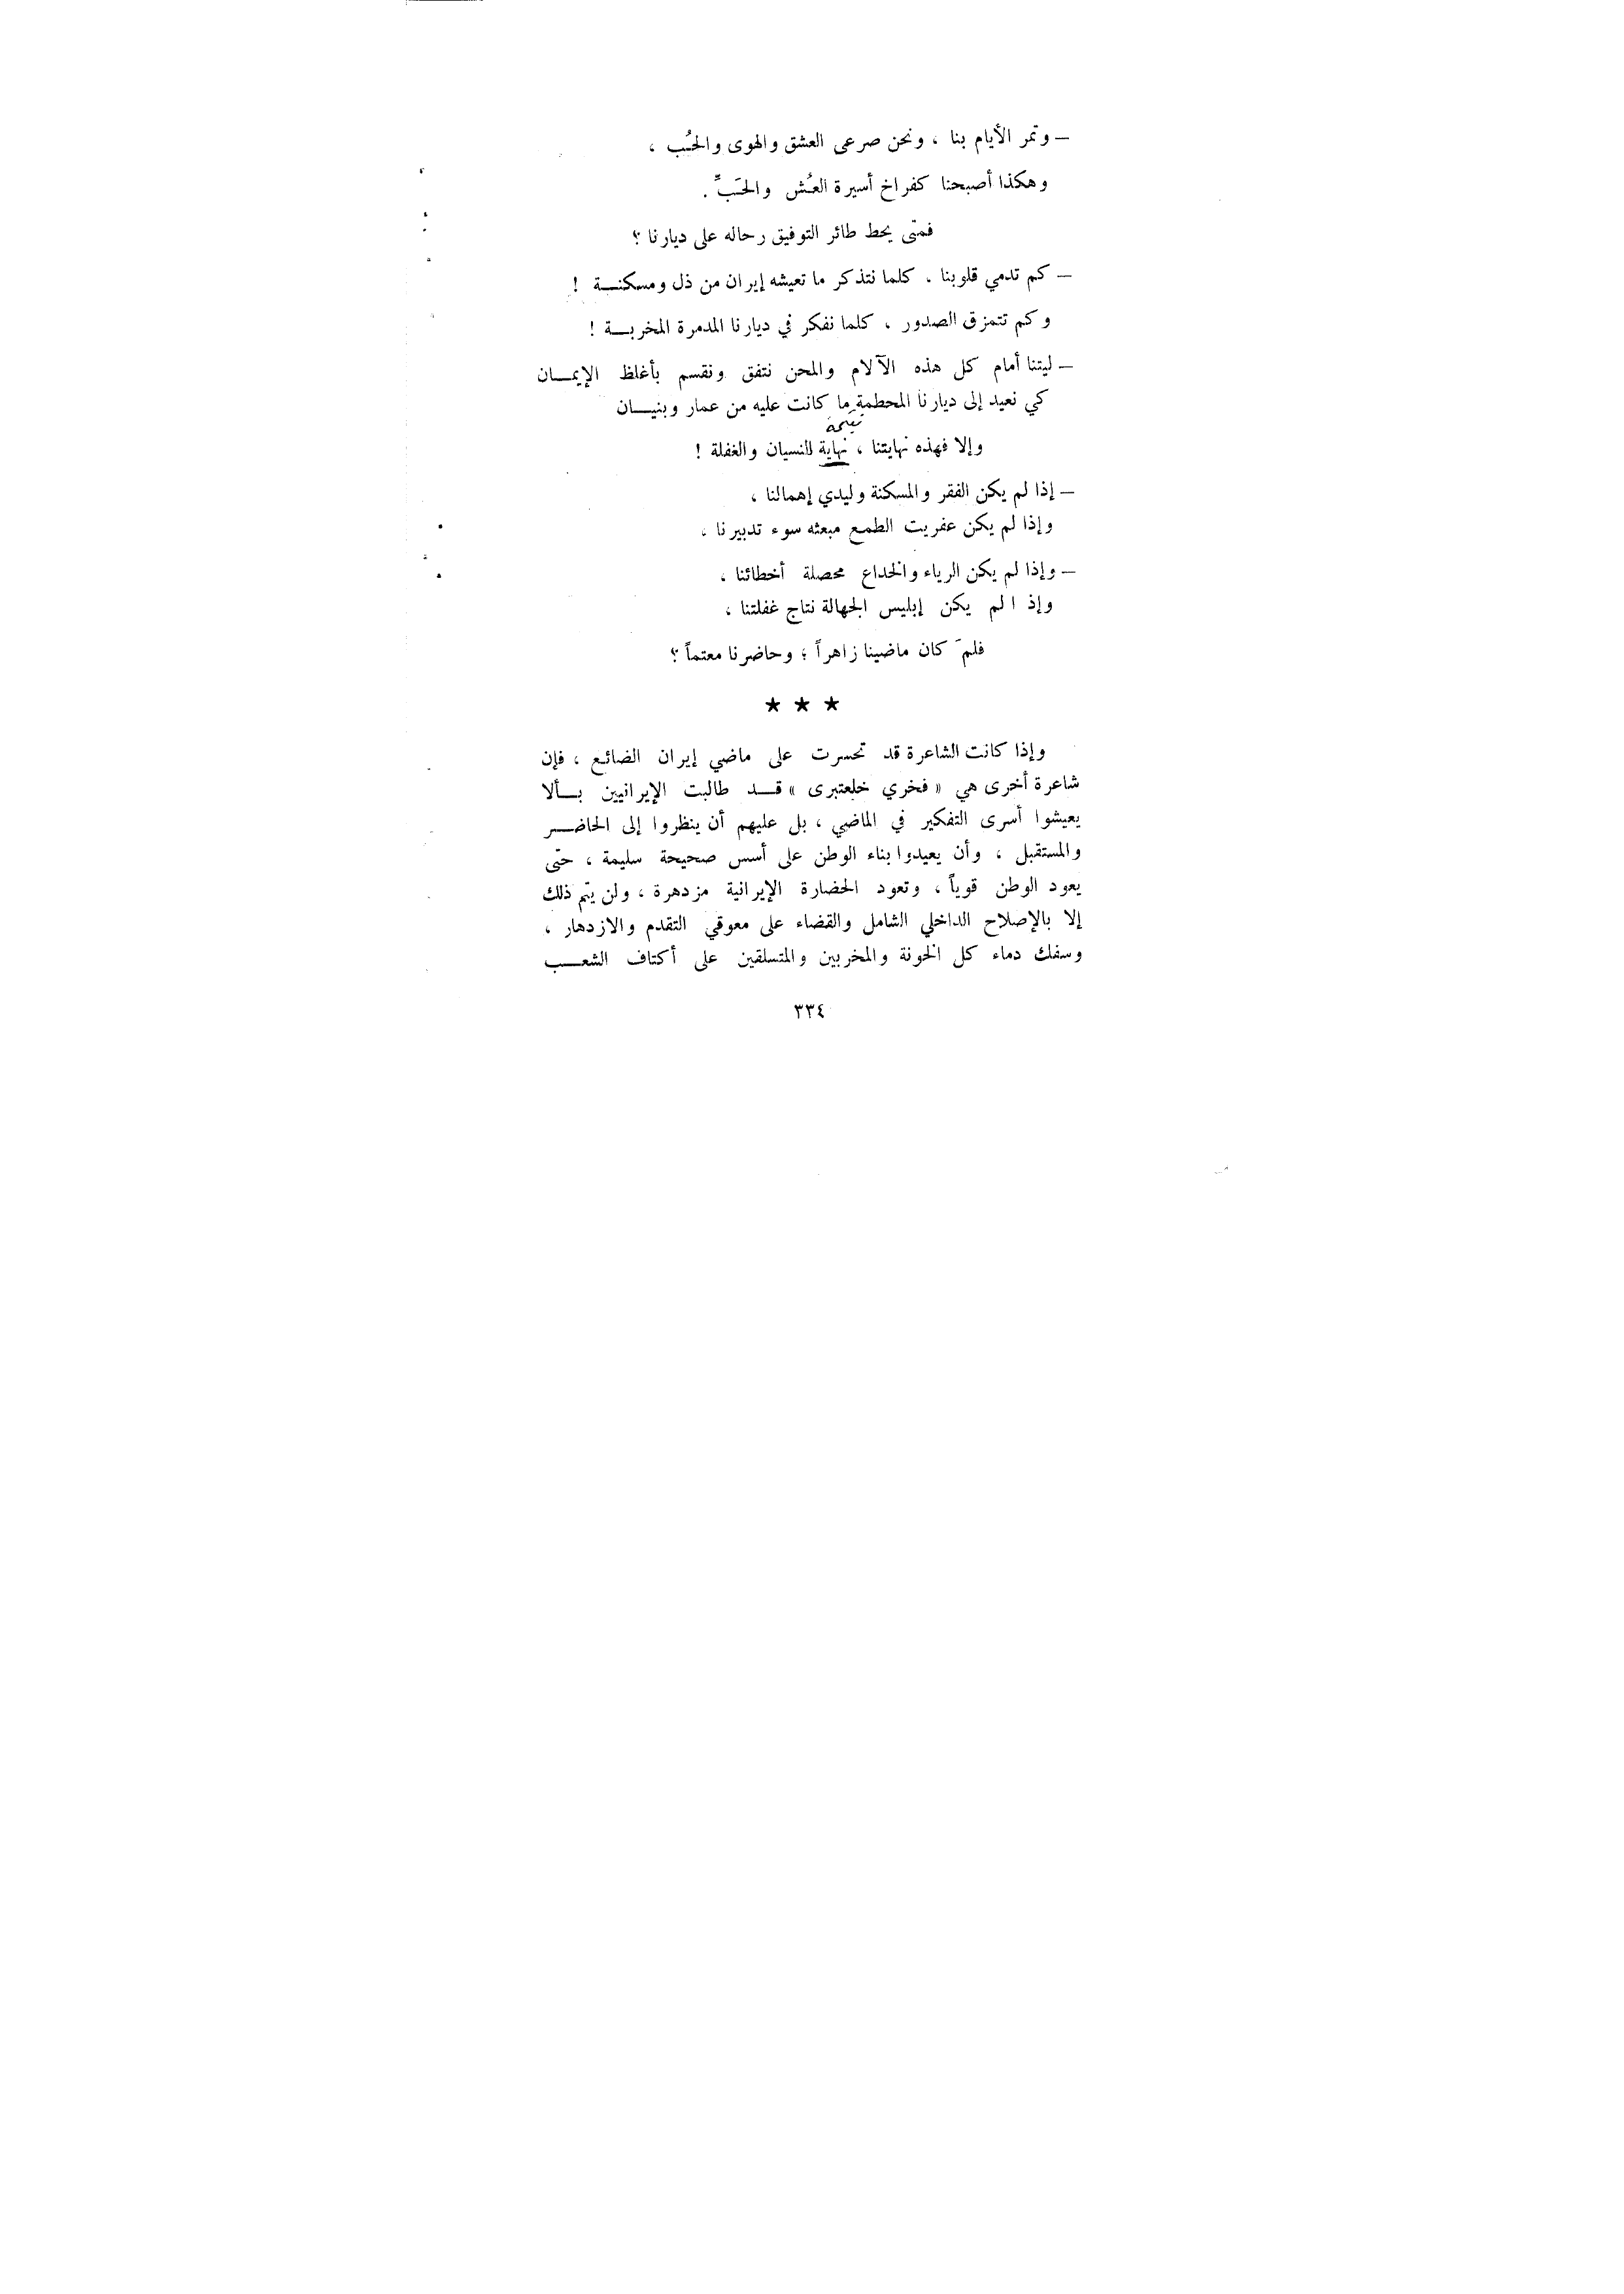 – وتمر الأيام بنا ، ونحن صرعى العشق والهوى والحُب ،
وهكذا أصبحنا كفراخ أسيرة العُش والحَبِّ .
فمتى يحط طائر التوفيق رحاله على ديارنا ؟
– كم تدمي قلوبنا ، كلما نتذكر ما تعيشه إيران من ذل ومسكنــة !
وكم تتمزق الصدور ، كلما نفكر في ديارنا المدمرة المخربــة !
– ليتنا أمام كل هذه الآلام والمحن نتفق ونقسم بأغلظ الإيمــان
كي نعيد إلى ديارنا المحطمة ما كانت عليه من عمار وبنيــان
وإلا فهذه نهايتنا ، نهاية للنسيان والغفلة !
– إذا لم يكن الفقر والمسكنة وليدي إهمالنا ،
وإذا لم يكن عفريت الطمع مبعثه سوء تدبيرنا ،
– وإذا لم يكن الرياء والخداع محصلة أخطائنا ،
وإذا لم يكن إبليس الجهالة نتاج غفلتنا ،
فلمَ كان ماضينا زاهراً ؛ وحاضرنا معتماً ؟
★ ★ ★
وإذا كانت الشاعرة قد تحسرت على ماضي إيران الضائع ، فإن
شاعرة أخرى هي « فخري خلعتبرى » قــد طالبت الإيرانيين بــألا
يعيشوا أسرى التفكير في الماضي ، بل عليهم أن ينظروا إلى الحاضــر
والمستقبل ، وأن يعيدوا بناء الوطن على أسس صحيحة سليمة ، حتى
يعود الوطن قوياً ، وتعود الحضارة الإيرانية مزدهرة ، ولن يتم ذلك
إلا بالإصلاح الداخلي الشامل والقضاء على معوقي التقدم والازدهار ،
وسفك دماء كل الخونة والمخربين والمتسلقين على أكتاف الشعــب
٣٣٤